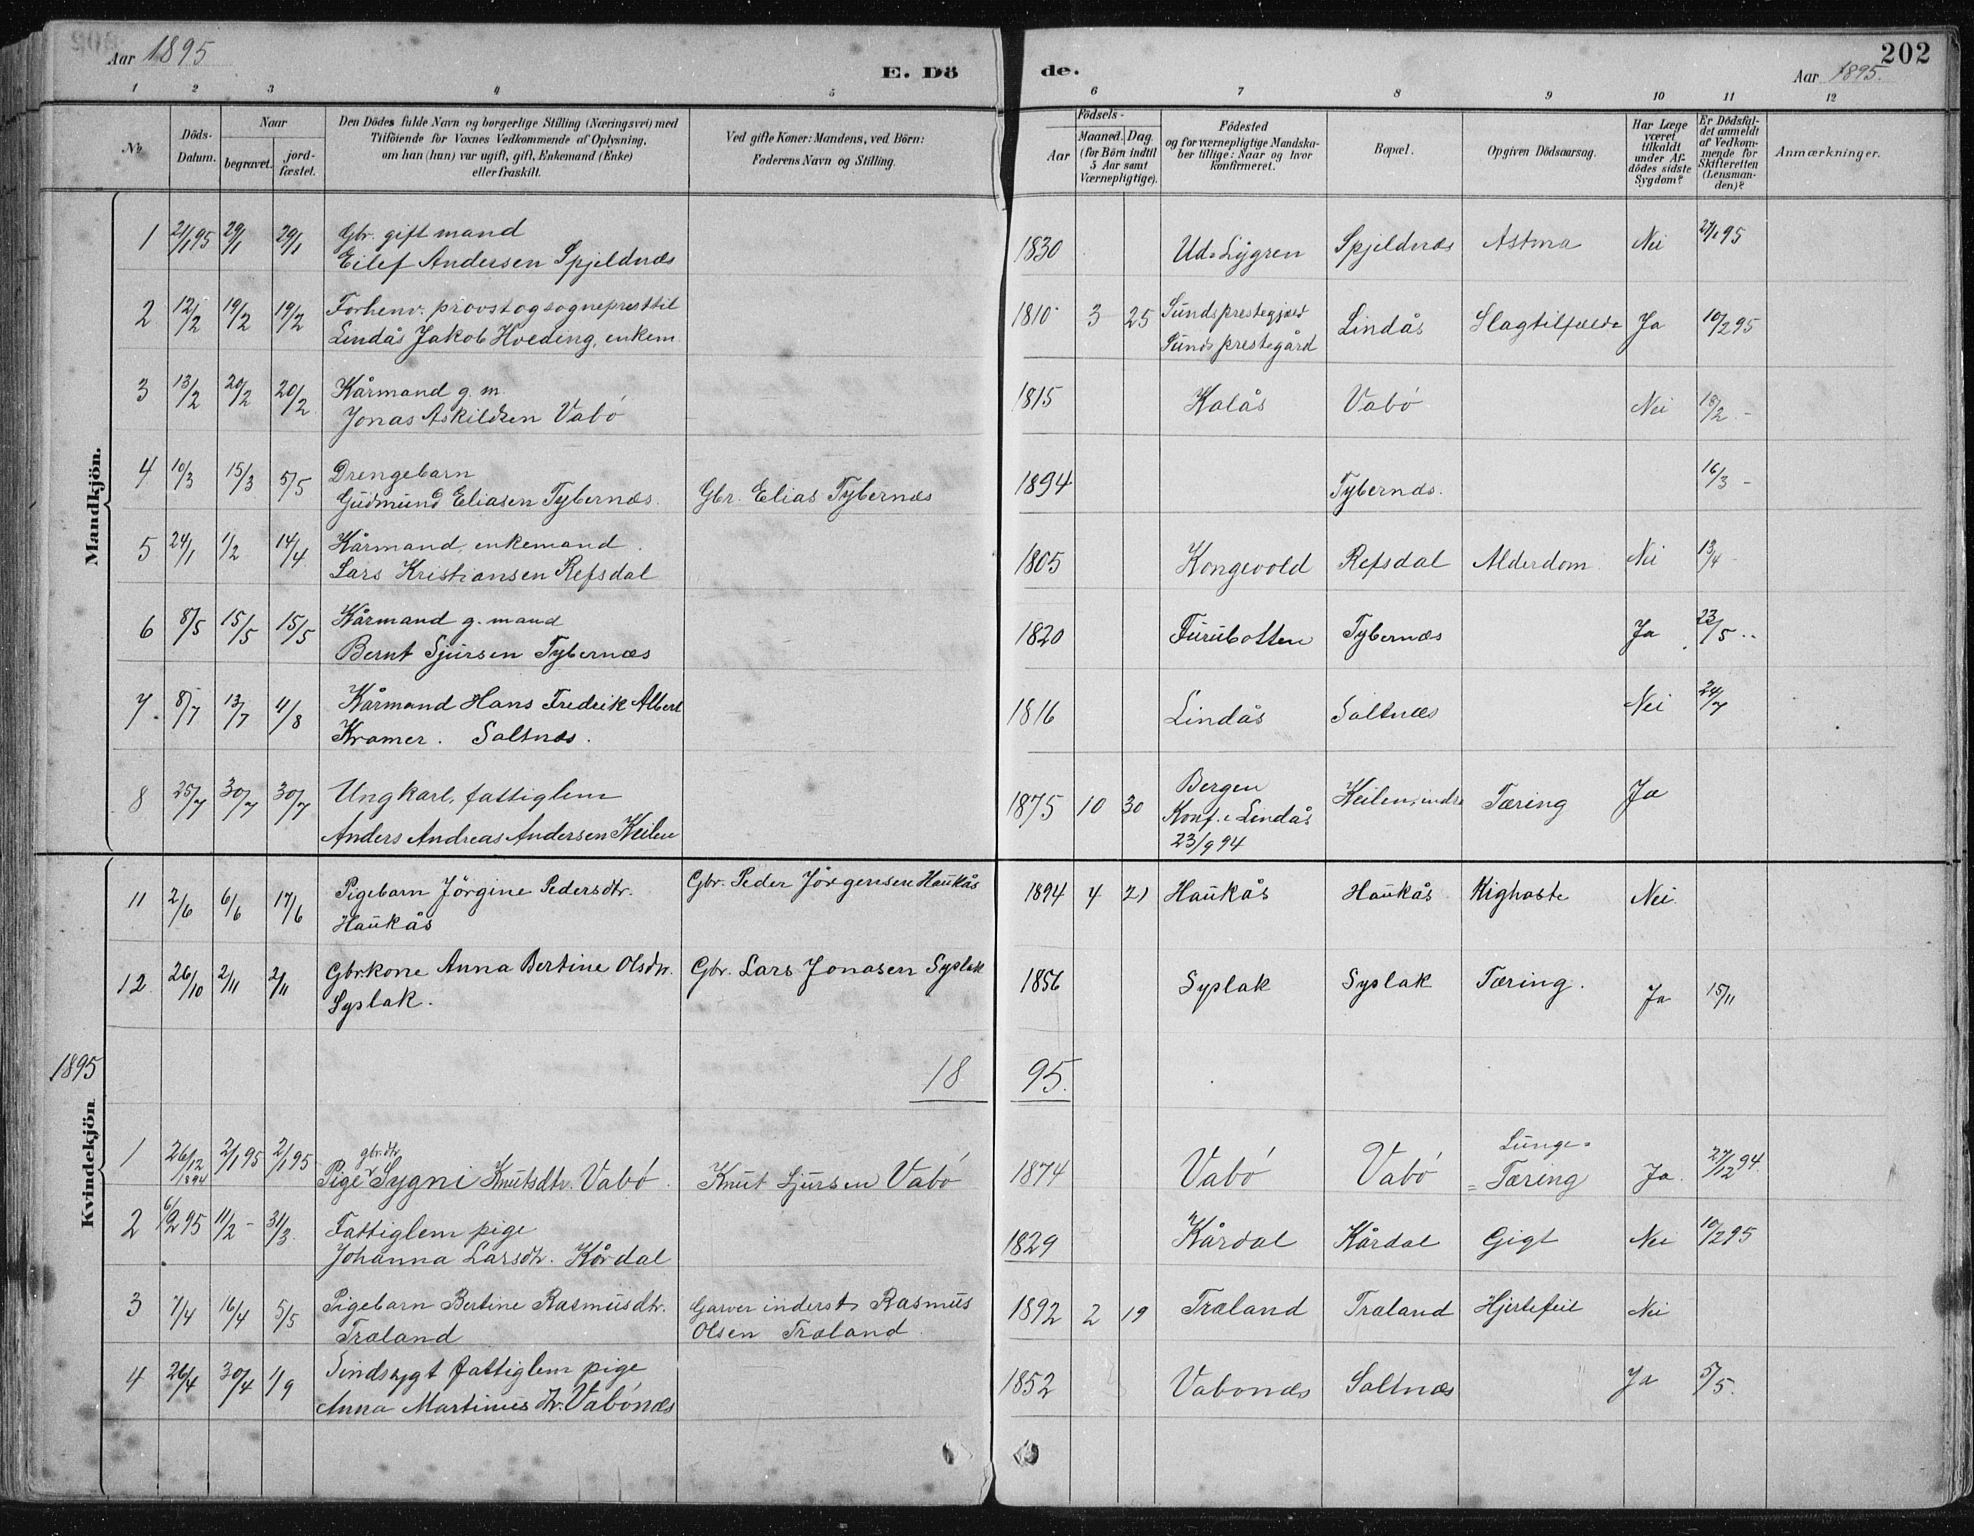 Aar 1895
E. Dö
de.
202
Aar 1895.
1 2 3 4 5 6 7 8 9 10 11 12
No.
Döds-Datum.
Naar
begravet.
jord-fæstet.
Den Dödes fulde Navn og borgerlige Stilling (Næringsvei) med
Tilföiende for Voxnes Vedkommende af Oplysning,
om han (hun) var ugift, gift, Enkemand (Enke)
eller fraskilt.
Ved gifte Koner: Mandens, ved Börn:
Faderens Navn og Stilling.
Födsels-
Aar
Maaned. Dag.
(for Börn indtil
5 Aar samt
Værnepligtige).
Födested
og for værnepligtige Mandska-
ber tillige: Naar og hvor
konfirmeret.
Bopæl.
Opgiven Dödsaarsag.
Har Læge
været
tilkaldt
under Af-
dödes sidste
Sygdom?
Er Dödsfal-
det anmeldt
af Vedkom-
mende for
Skifteretten
(Lensman-
den)?
Anmærkninger.
Mandkjön.
1 21/1 95 29/1 29/1 Gbr. gift mand
Eilef Andersen Spjeldnæs 1830 Ud-Lygren Spjeldnæs Astma Nei 27/1 95
2 12/2 19/2 19/2 Forhenv. provst og sogneprest til
Lindås Jakob Hveding, enkem 1810 3 25 Sunds prestegjæld
Sunds prestegård Lindås Slagtilfælde Ja 10/2 95
3 13/2 20/2 20/2 Kårmand g. m.
Jonas Askildsen Vabö 1815 Kalås Vabö Nei 18/2 -
4 10/3 15/3 5/5 Drengebarn
Gudmund Eliasen Tybernæs. Gbr. Elias Tybernæs 1894 Tybernæs. 16/3 -
5 24/1 1/2 14/4 Kårmand, enkemand.
Lars Kristiansen Refsdal 1805 Kongevold Refsdal Alderdom Nei 13/4 -
6 8/5 15/5 15/5 Kårmand g. mand
Bernt Sjursen Tybernæs 1820 Furubotten Tybernæs Ja 23/5 -
7. 8/7 13/7 4/8 Kårmand Hans Fredrik Albert
Kramer. Saltnæs. 1816 Lindås Saltnæs Nei 24/7
8 25/7 30/7 30/7 Ungkarl, fattiglem
Anders Andreas Andersen Keilen 1875 10 30 Bergen
Konf. i Lindås
23/9 94 Keilen, indre Tæring Ja
11 2/6 6/6 17/6 Pigebarn Jörgine Pedersdtr.
Haukås Gbr. Peder Jörgensen Haukås 1894 4 21 Haukås Haukås Kighoste Nei
12 26/10 2/11 2/11 Gbrkone Anna Bertine Olsdtr.
Syslak. Gbr. Lars Jonasen Syslak 1856 Syslak Syslak Tæring. Ja 15/11
1895
18 95.
Kvindekjön
1 26/12 1894 2/1 95 2/1 95 gbr.dtr.
Pige Sygni Knutsdtr. Vabö Knut Sjursen Vabö 1874 Vabö Vabö Lunge-
=Tæring Ja. 27/12 94.
2 6/2 95 11/2 - 31/3. Fattiglem pige
Johanna Larsdtr. Kårdal 1829 Kårdal Kårdal Gigt Nei 10/2 95
3 7/4 16/4 5/5 Pigebarn Bertine Rasmusdtr.
Træland Garver inderst Rasmus
Olsen Træland. 1892 2 19 Træland Træland Hjertefeil Nei
4 26/4 30/4 1/9 Sindsygt fattiglem pige
Anna Martinus dtr. Vabönæs 1852 Vabonæs Saltnæs Ja 5/5.